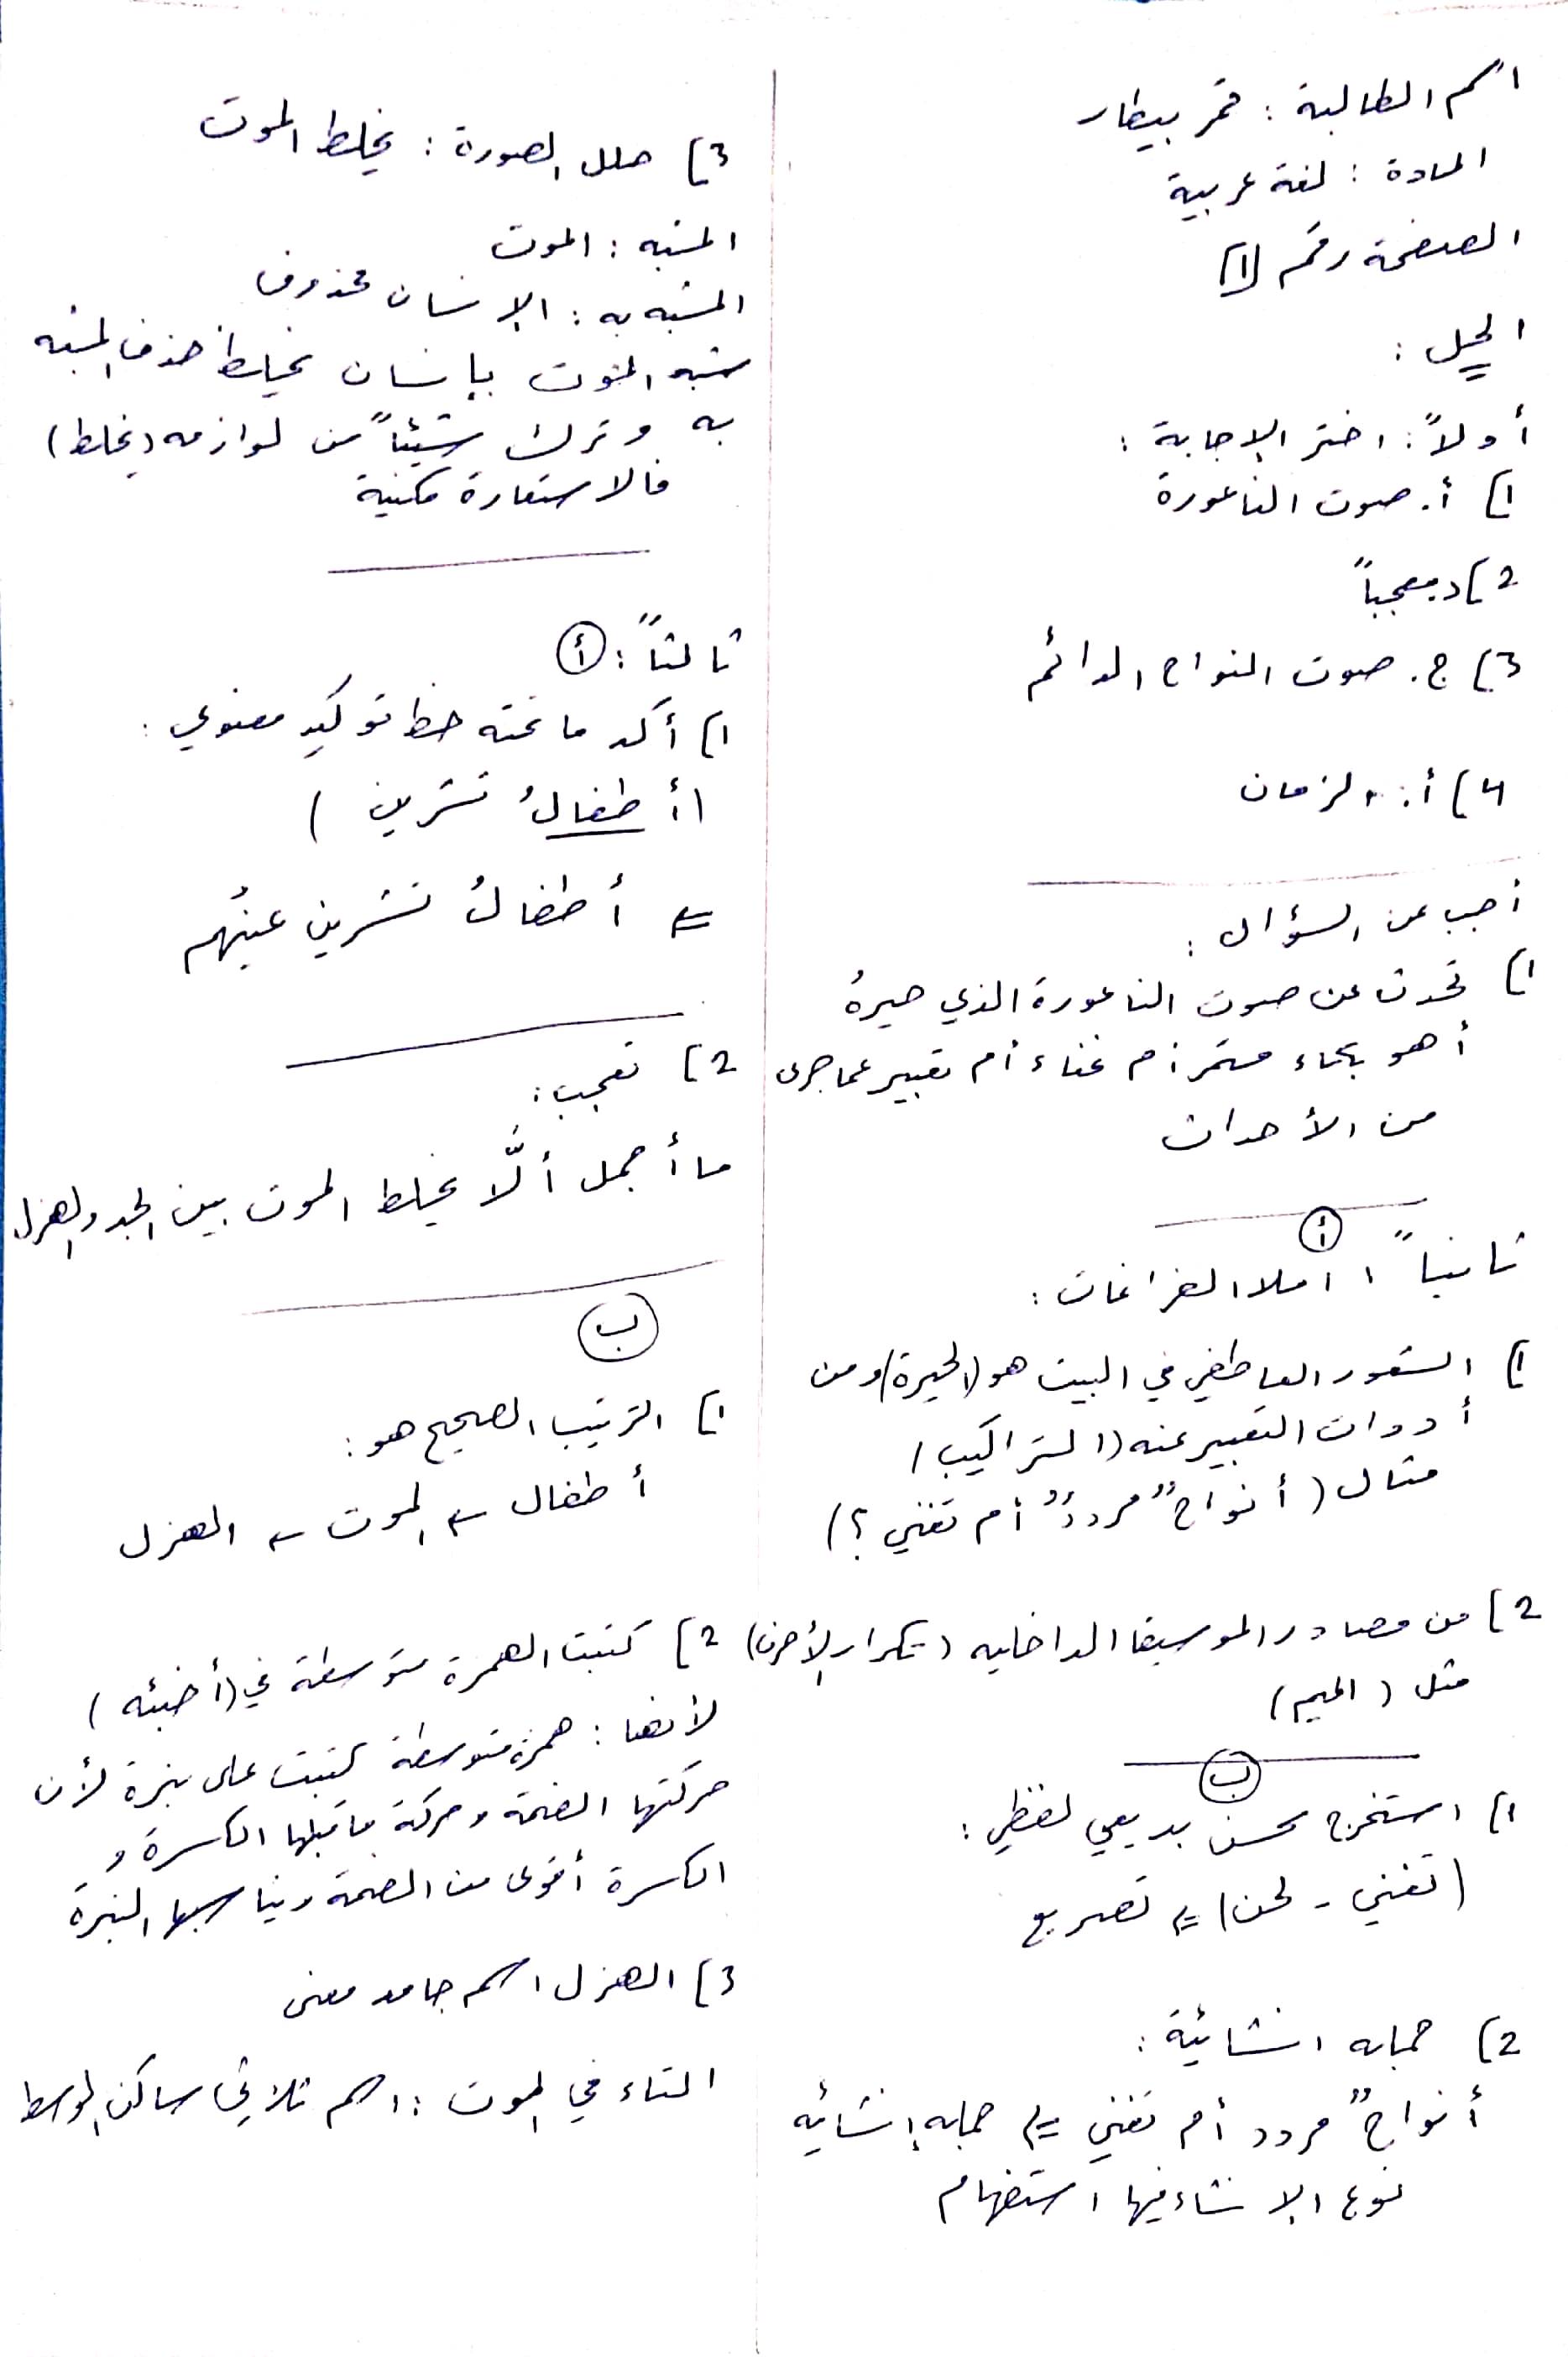 اسم الطالبة : قمر بيطار
المادة : لغة عربية
الصفحة رقم (1)
الحل :
أولاً : اختر الإجابة :
1) أ. صوت الناعورة
2) د. معجباً
3) ج. صوت النواح الدائم
4) أ. الزمان
أجب عن السؤال :
1) تحدث عن صوت الناعورة الذي حيرهُ
أهو بكاء مستمر أم غناء أم تعبير عما جرى
من الأحداث
أ
ثانياً : املا الفراغات :
1) الشعور العاطفي في البيت هو (الحيرة) ومن
أدوات التعبير عنه (التراكيب)
مثال ( أنواحٌ مرددٌ أم تغني ؟)
2) من مصادر الموسيقا الداخليه (تكرار الأحرف)
مثل ( الميم )
ب
1) استخرج محسن بديعي لفظي :
(تغني - لحن) ⇐ تصريع
2) جمله انشائية :
أنواحٌ مردد أم تغني ⇐ جمله إنشائيه
نوع الإنشاء فيها استفهام
3) حلل الصورة : يخلط الموت
المشبه : الموت
المشبه به : الإنسان محذوف
شبه الموت بإنسان يخلط حذف المشبه
به وترك شيئاً من لوازمه (يخلط)
فالاستعارة مكنية
ثالثاً : أ
1) أكد ما تحته خط توكيد معنوي :
(أطفالُ تشرين )
⇐ أطفالُ تشرين عينُهم
2) تعجب :
ما أجمل ألَّا يخلط الموت بين الجد والهزل
ب
1) الترتيب الصحيح هو :
أطفال ← الموت ← الهزل
2) كتبت الهمزة متوسطة في (أخبئه )
لأنها : همزة متوسطة كتبت على نبرة لأن
حركتها الضمة وحركة ما قبلها الكسرة و
الكسرة أقوى من الضمة ويناسبها النبرة
3) الهزل اسم جامد معنى
التاء في الموت : اسم ثلاثي ساكن الوسط